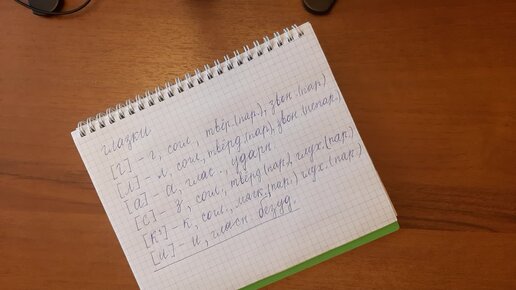 глазки
[г] - г, согл., твёр.(пар.), звон.(пар.)
[л] - л, согл., твёрд.(пар.), звон.(непар.)
[а] - а, глас., ударн.
[с] - з, согл., твёрд.(пар.), глух.(пар.)
[к'] - к, согл., мягк.(пар.), глух.(пар.)
[и] - и, гласн. безуд.